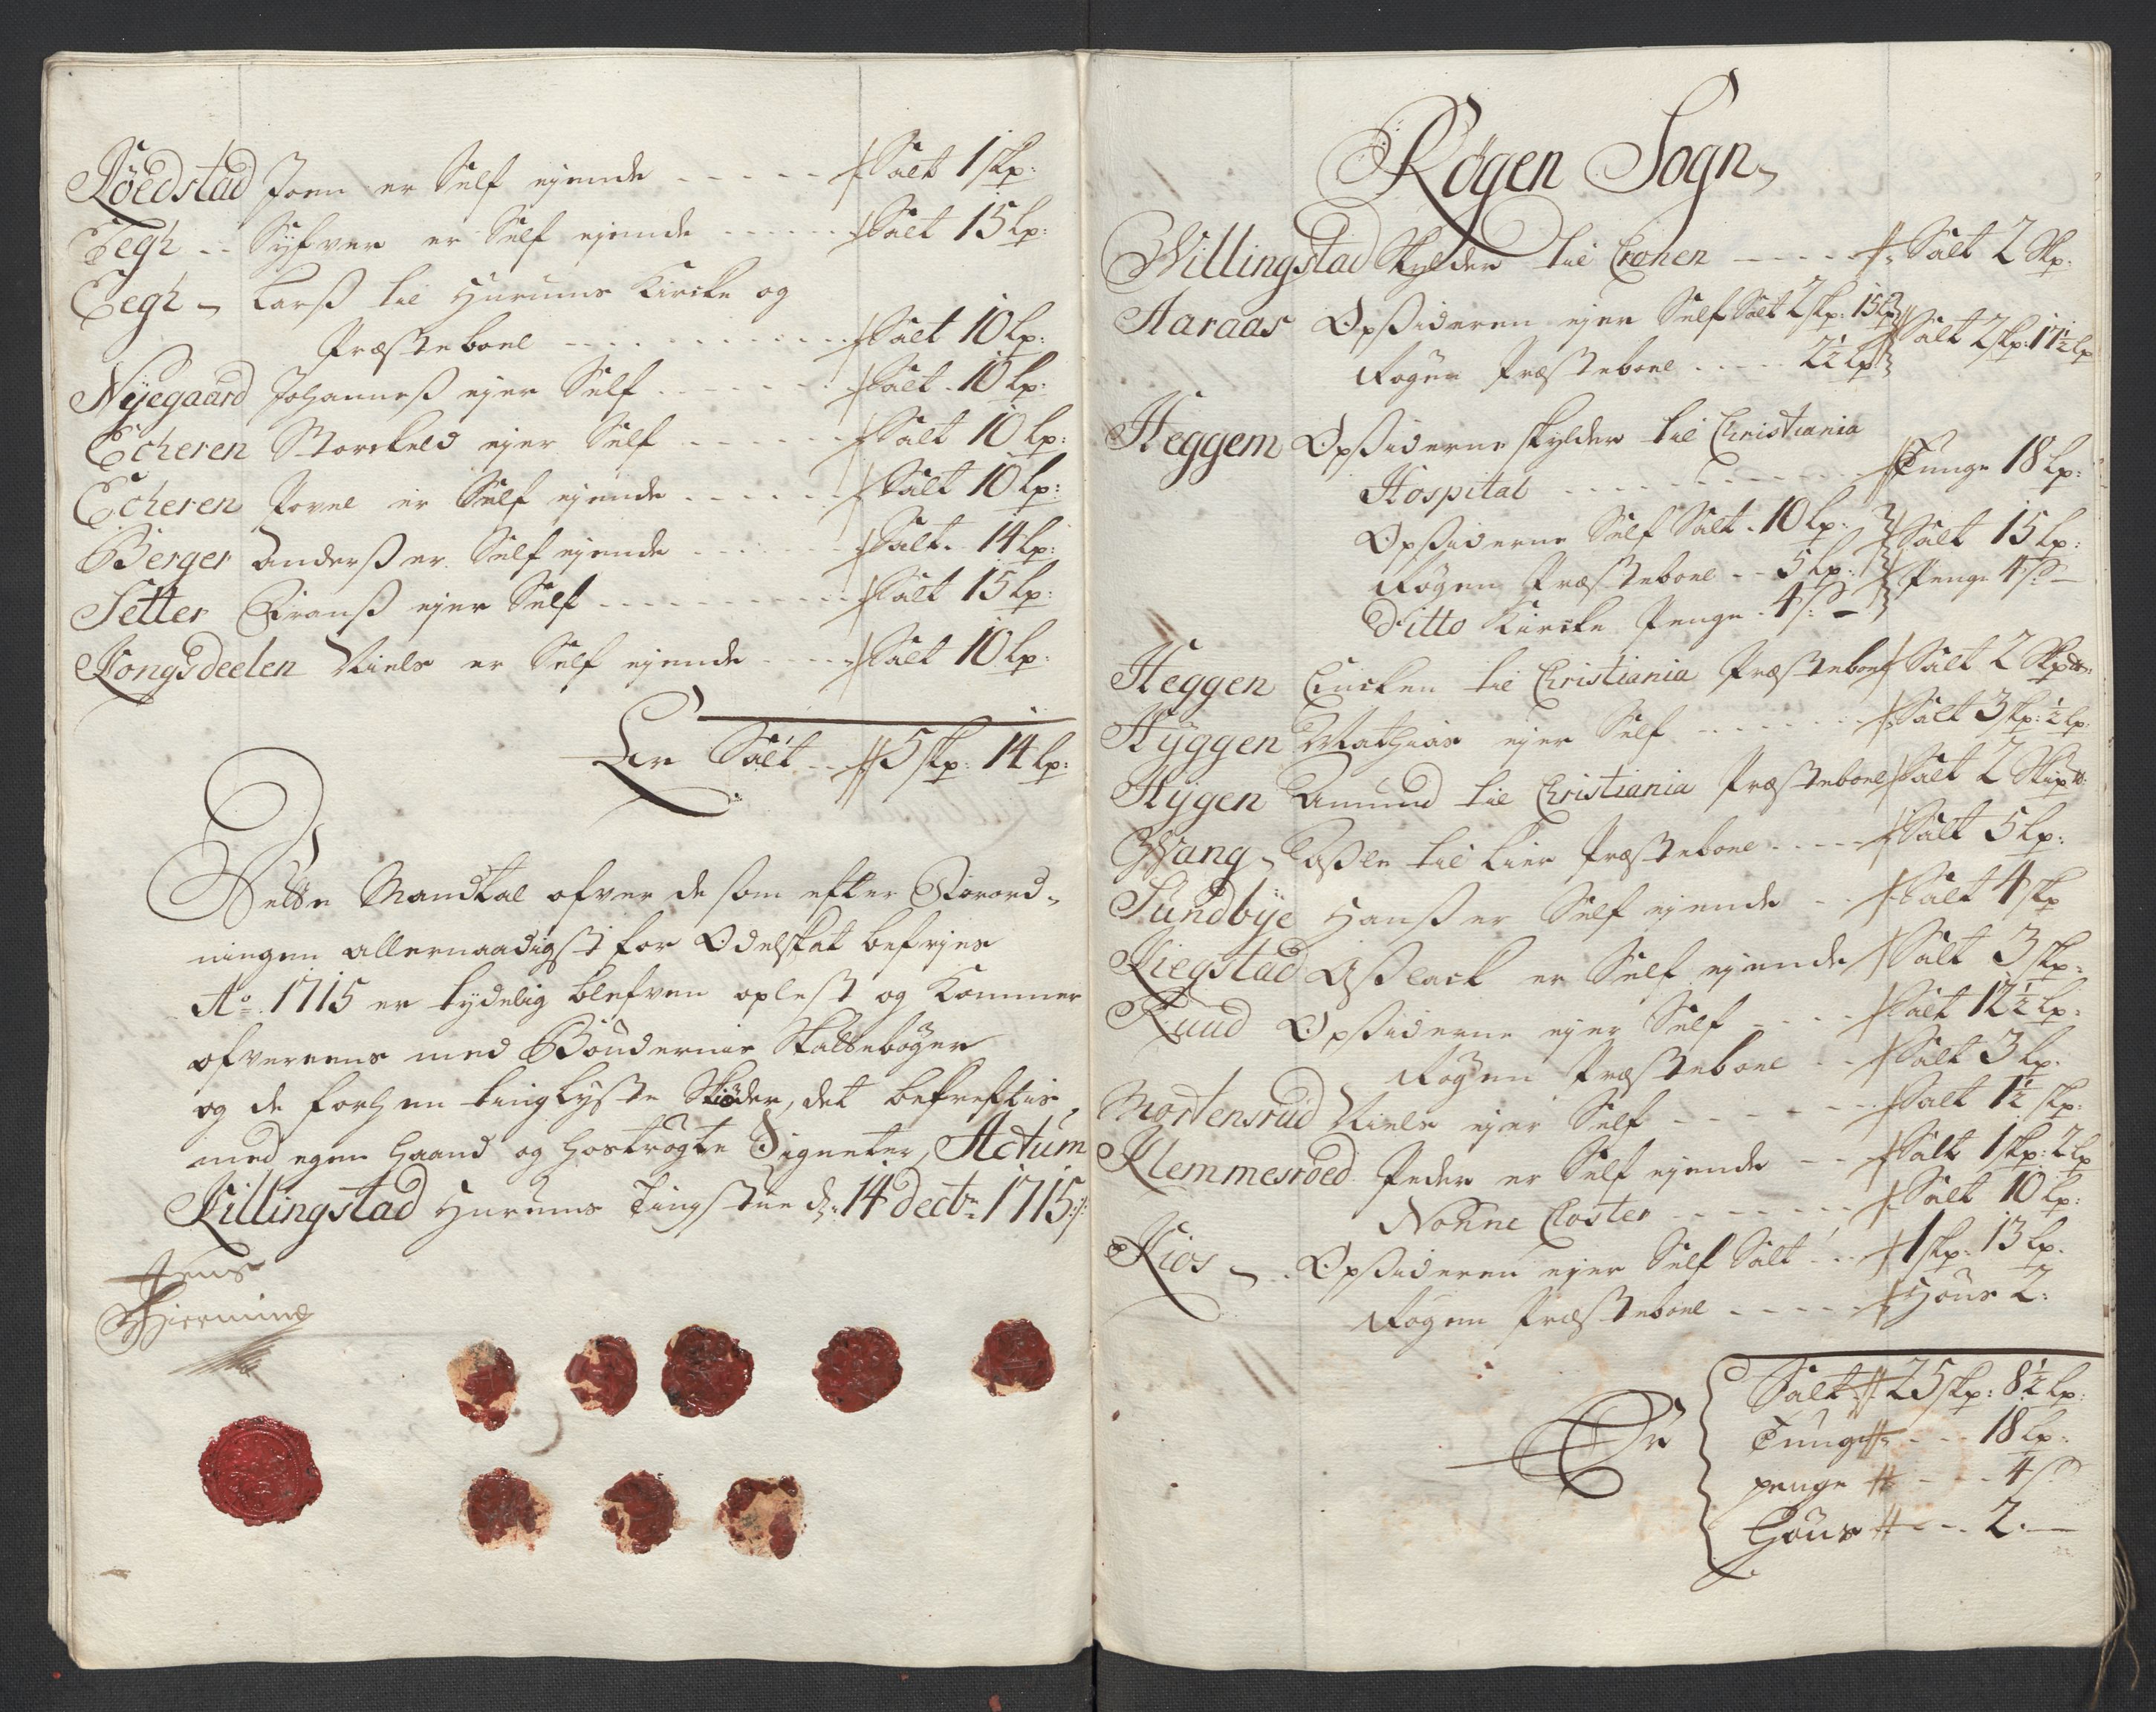 Röedstad Joen er Self ejende - - - - - Salt 1 skp:
Eegh - - Sÿfver er Self ejende - - - - - Salt 15 Lp:
Eegh - Larß til Hurums Kircke og
Præsteboel - - - - - - - - Salt 10 Lp:
Nÿegaard Johanneß ejer Self - - - - - Salt - 10 Lp:
Echeren Storckeld ejer Self - - - - - Salt 10 Lp:
Echeren Povel er Self ejende - - - - - Salt 10 Lp:
Berger Anderß er Self ejende - - - - - Salt - 14 Lp:
Setter Franß ejer Self - - - - - - - Salt 15 Lp:
Kongsdeelen Niels er Self ejende - - - - Salt 10 Lp:
Er Salt - - 5 skp: 14 Lp:
Dette Mandtal ofver de som efter Forord-
ningen allernaadigst for Odelskat befries
Ao. 1715 er tydelig blefven oplest og kommer
ofvereens med Böndernis Skattebøger
og de forhen tinglyste Skiøder, det bekreftis
med egen haand og hoströgte Signeter, Actum
Killingstad Hurums Tingstue d: 14 dectr: 1715:/:
Jens
Røgen Sogn
Willingstad Skylder til Cronen - - - - Salt 2 Skp:
Aaraas Opsideren ejer Self Salt 2 skp: 15 Lp Salt 2 skp: 17½ Lp
Røgen Præsteboel - - - - - 2½ Lp:
Heggem Opsiderne skylder til Christiania
Hospital - - - - - - - - - Tunge 18 Lp:
Opsiderne Self Salt - 10 Lp: Salt 15 Lp:
Røgen Præsteboel - - 5 Lp: Penge 4 s: -
Ditto Kircke Penge - 4 s: -
Heggen Encken til Christiania Præsteboel Salt 2 Skp
Hÿggen Mathias ejer Self - - - - - - Salt 3 skp: ½ Lp:
Hÿgen Amund til Christiania Præsteboel Salt 2 Skp:
Wang - Aßle til Lier Præsteboel - - - - Salt 5 Lp:
Sundbÿe Hanß er Self ejende - - Salt 4 skp
Kiegstad Aßlack er Self ejende Salt 3 skp:
Ruud Opsiderne ejer Self - - - - Salt 12½ Lp:
Røgen Præsteboel - - Salt 3 Lp:
Mortensrud Niels ejer Self - - - - - - Salt 1½ skp:
Klemmesroed Peder er Self ejende - - Salt 1 skp: 2 Lp
Nonne Closter - - - - - - Salt 10 Lp:
Kios - - Opsideren ejer Self Salt - - 1 skp: 13 Lp:
Røgen Præsteboel - - - - - Høns 2:
Er Salt 25 skp: 8½ Lp:
Tunge - - - 18 Lp:
penge - - - 4 s:
Høns - - - 2. -